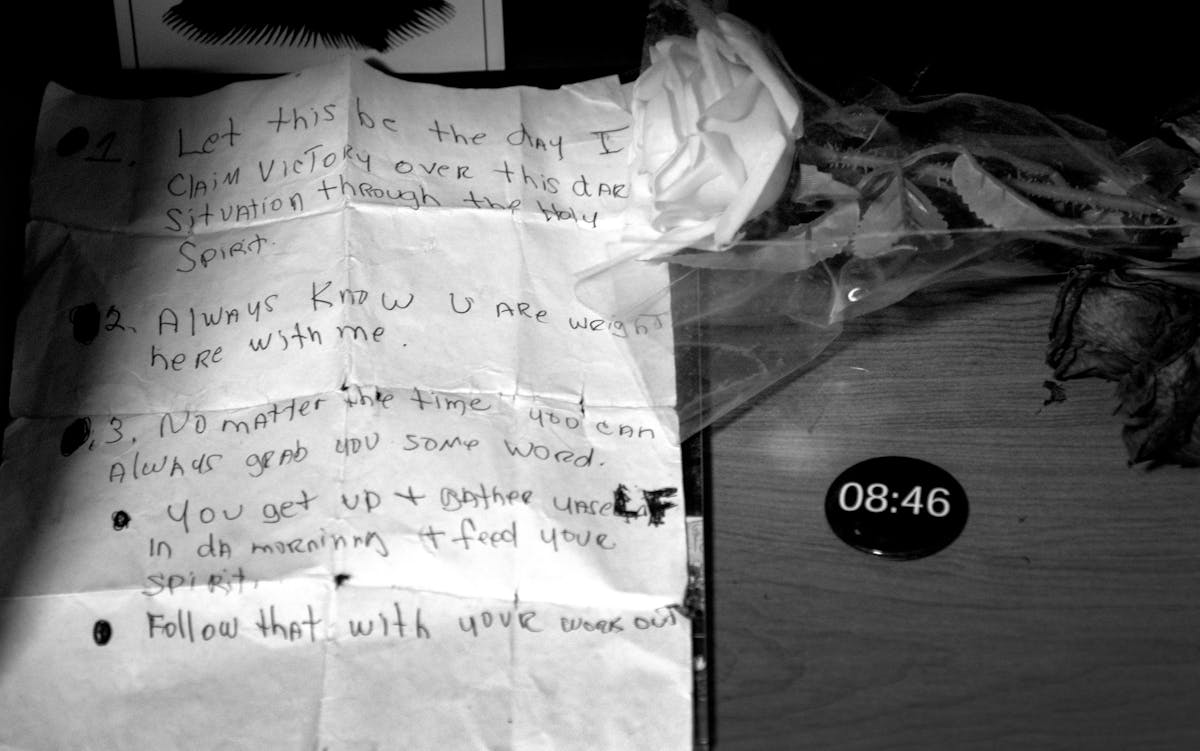 1. Let this be the dAy I
CLAiM VicToRy oveR this dAR
SitUAtion thRough the Holy
SpiRit.
2. AlwAys Know U ARe weight
heRe with me.
3. No mAtteR the time you cAn
AlwAys gRAb you some woRd.
You get up + gAtheR
in dA moRninng + feed youR
SpiRit.
Follow thAt with youR woRk out
08:46